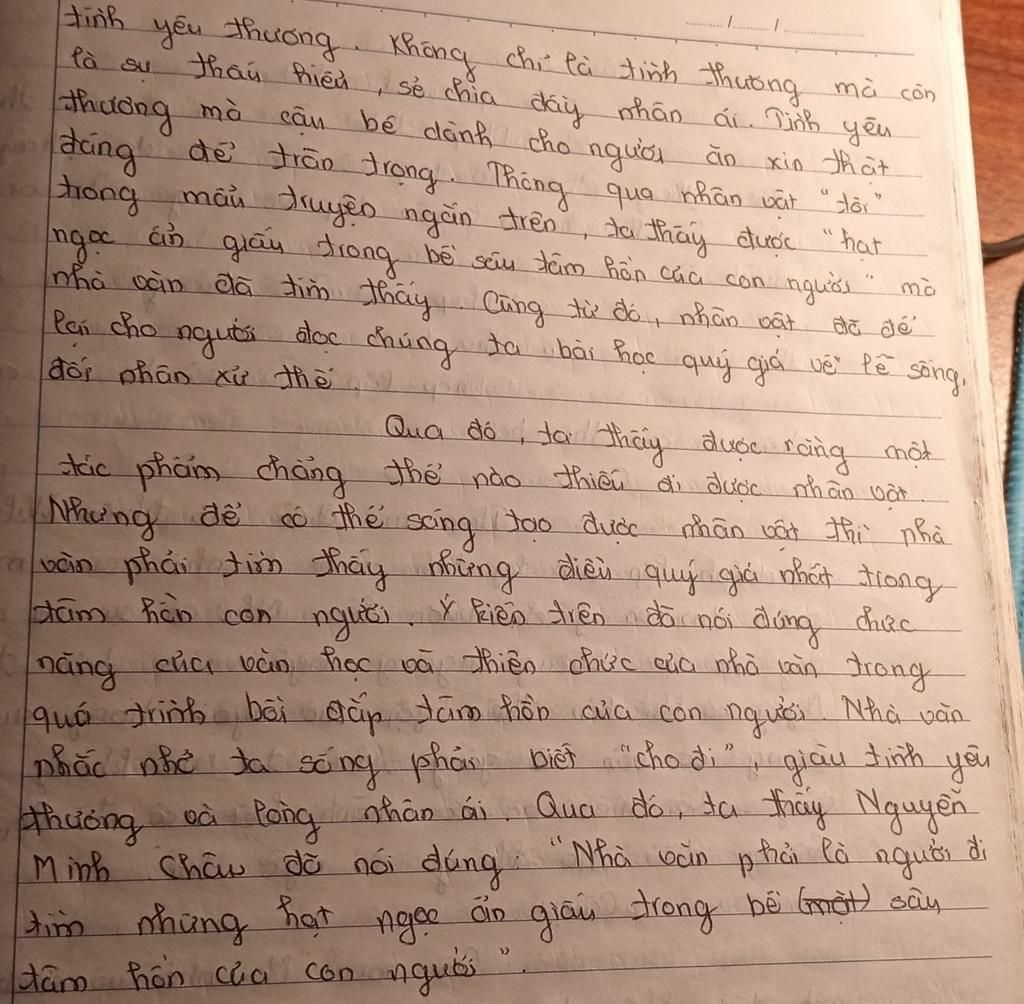 tình yêu thương. Không chỉ là tình thương mà còn
là sự thấu hiểu, sẻ chia đầy nhân ái. Tình yêu
thương mà cậu bé dành cho người ăn xin thật
đáng để trân trọng. Thông qua nhân vật "tôi"
trong mẩu truyện ngắn trên, ta thấy được "hạt
ngọc ẩn giấu trong bề sâu tâm hồn của con người" mà
nhà văn đã tìm thấy. Cũng từ đó, nhân vật đã để
lại cho người đọc chúng ta bài học quý giá về lẽ sống,
đối nhân xử thế.
Qua đó, ta thấy được rằng một
tác phẩm chẳng thể nào thiếu đi được nhân vật.
Nhưng để có thể sáng tạo được nhân vật thì nhà
văn phải tìm thấy những điều quý giá nhất trong
tâm hồn con người. Ý kiến trên đã nói đúng chức
năng của văn học và thiên chức của nhà văn trong
quá trình bồi đắp tâm hồn của con người. Nhà văn
nhắc nhở ta sống phải biết "cho đi", giàu tình yêu
thương và lòng nhân ái. Qua đó, ta thấy Nguyễn
Minh Châu đã nói đúng: "Nhà văn phải là người đi
tìm những hạt ngọc ẩn giấu trong bề (một) sâu
tâm hồn của con người".